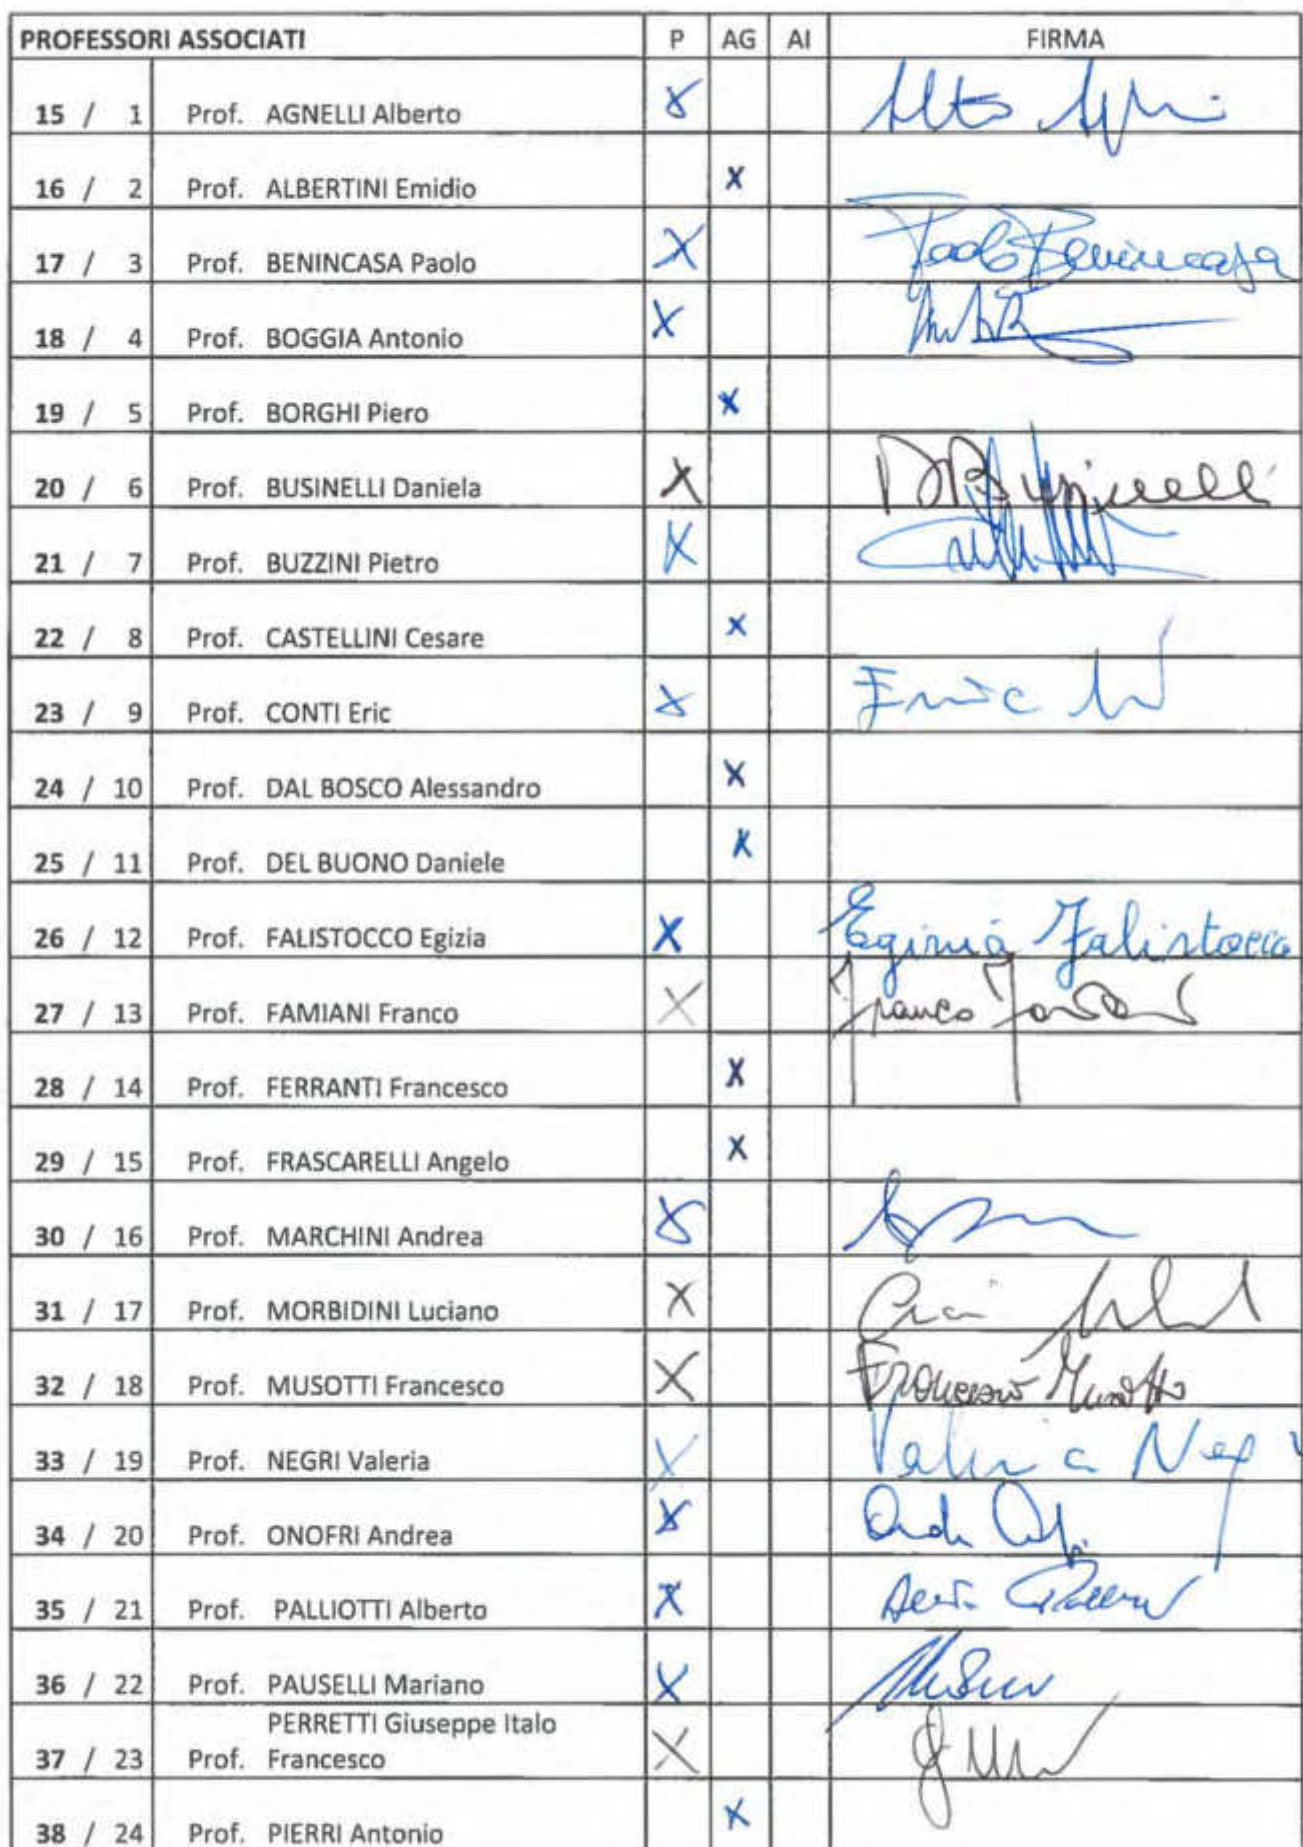 PROFESSORI ASSOCIATI P AG AI FIRMA
15 / 1 Prof. AGNELLI Alberto X
16 / 2 Prof. ALBERTINI Emidio X
17 / 3 Prof. BENINCASA Paolo X Paolo Benincasa
18 / 4 Prof. BOGGIA Antonio X
19 / 5 Prof. BORGHI Piero X
20 / 6 Prof. BUSINELLI Daniela X DBusinelli
21 / 7 Prof. BUZZINI Pietro X
22 / 8 Prof. CASTELLINI Cesare X
23 / 9 Prof. CONTI Eric X Eric
24 / 10 Prof. DAL BOSCO Alessandro X
25 / 11 Prof. DEL BUONO Daniele X
26 / 12 Prof. FALISTOCCO Egizia X Egizia Falistocco
27 / 13 Prof. FAMIANI Franco X Franco
28 / 14 Prof. FERRANTI Francesco X
29 / 15 Prof. FRASCARELLI Angelo X
30 / 16 Prof. MARCHINI Andrea X
31 / 17 Prof. MORBIDINI Luciano X
32 / 18 Prof. MUSOTTI Francesco X Francesco Musotti
33 / 19 Prof. NEGRI Valeria X Valeria Negri
34 / 20 Prof. ONOFRI Andrea X
35 / 21 Prof. PALLIOTTI Alberto X
36 / 22 Prof. PAUSELLI Mariano X
PERRETTI Giuseppe Italo
37 / 23 Prof. Francesco X
38 / 24 Prof. PIERRI Antonio X